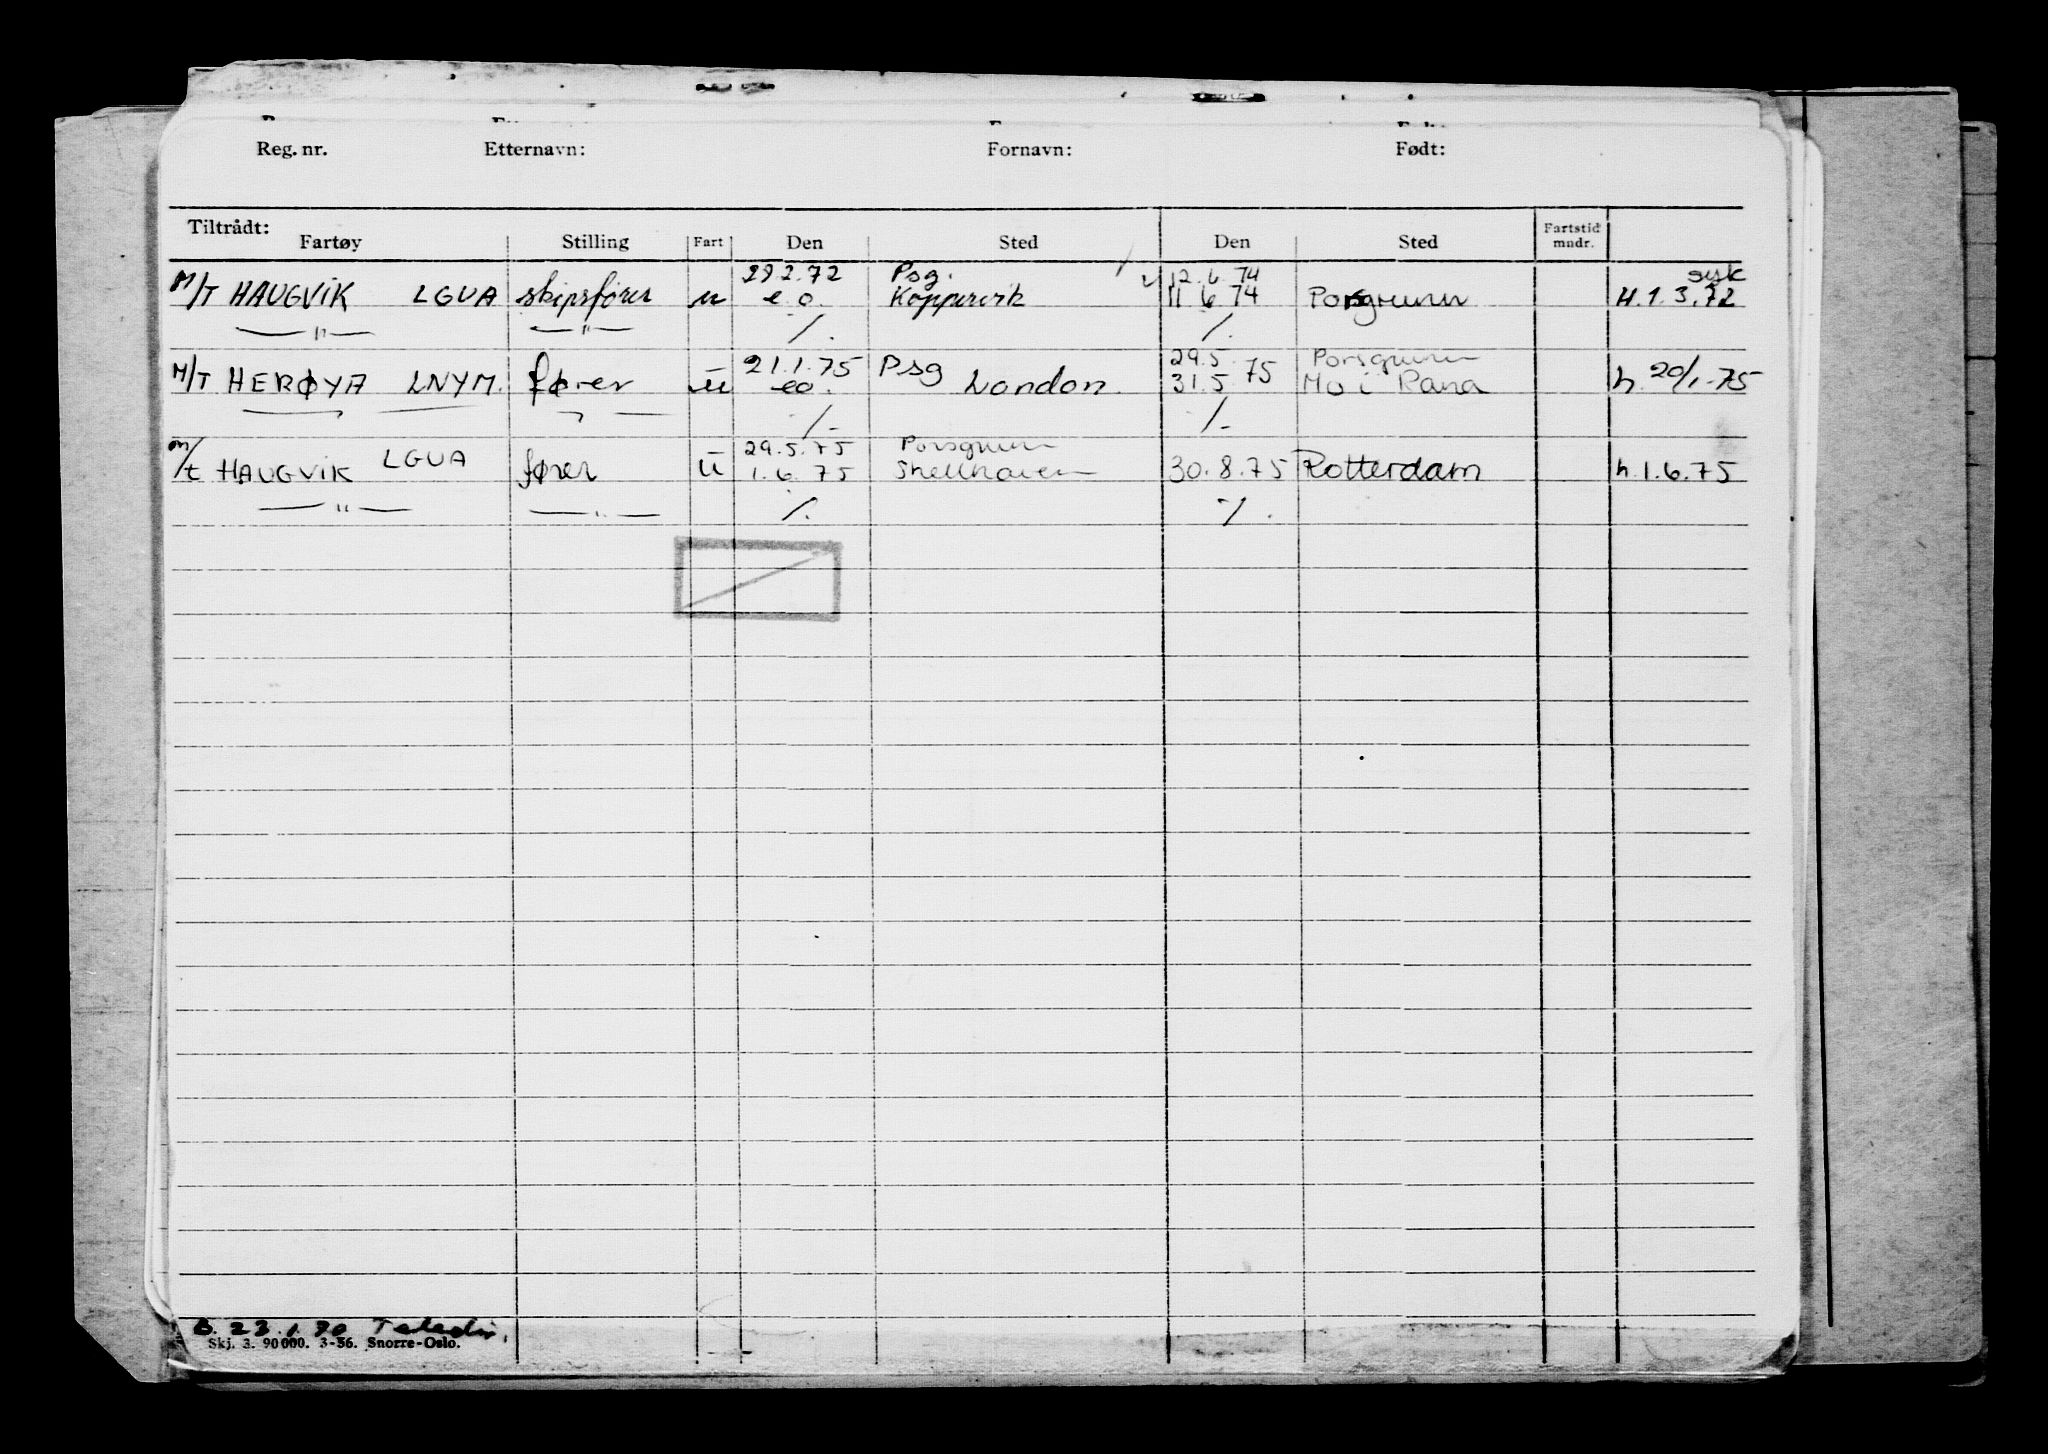 Reg. nr. Etternavn: Fornavn: Født:
Tiltrådt:
Fartøy Stilling Fart Den Sted Den Sted Fartstid mndr.
29.2.72 Psg. 12.6.74 syk
M/T HAUGVIK LGUA skipsfører u e.o. Koppervik 11 6 74 Porsgrunn H.1.3.72
— " — — " — /. /.
21.1.75 Psg 29.5 Porsgrunn
M/T HERØYA LNYM. fører u eo. London. 31.5 75 Mo i Rana h. 20/1-75
/- /-
29.5.75 Porsgrunn
M/t HAUGVIK LGUA fører u 1.6.75 Shellhaven 30.8.75 Rotterdam h.1.6.75
— " — — " — /. /.
B. 23.1.70 Teledir.
Skj. 3. 90 000. 3-56. Snorre-Oslo.